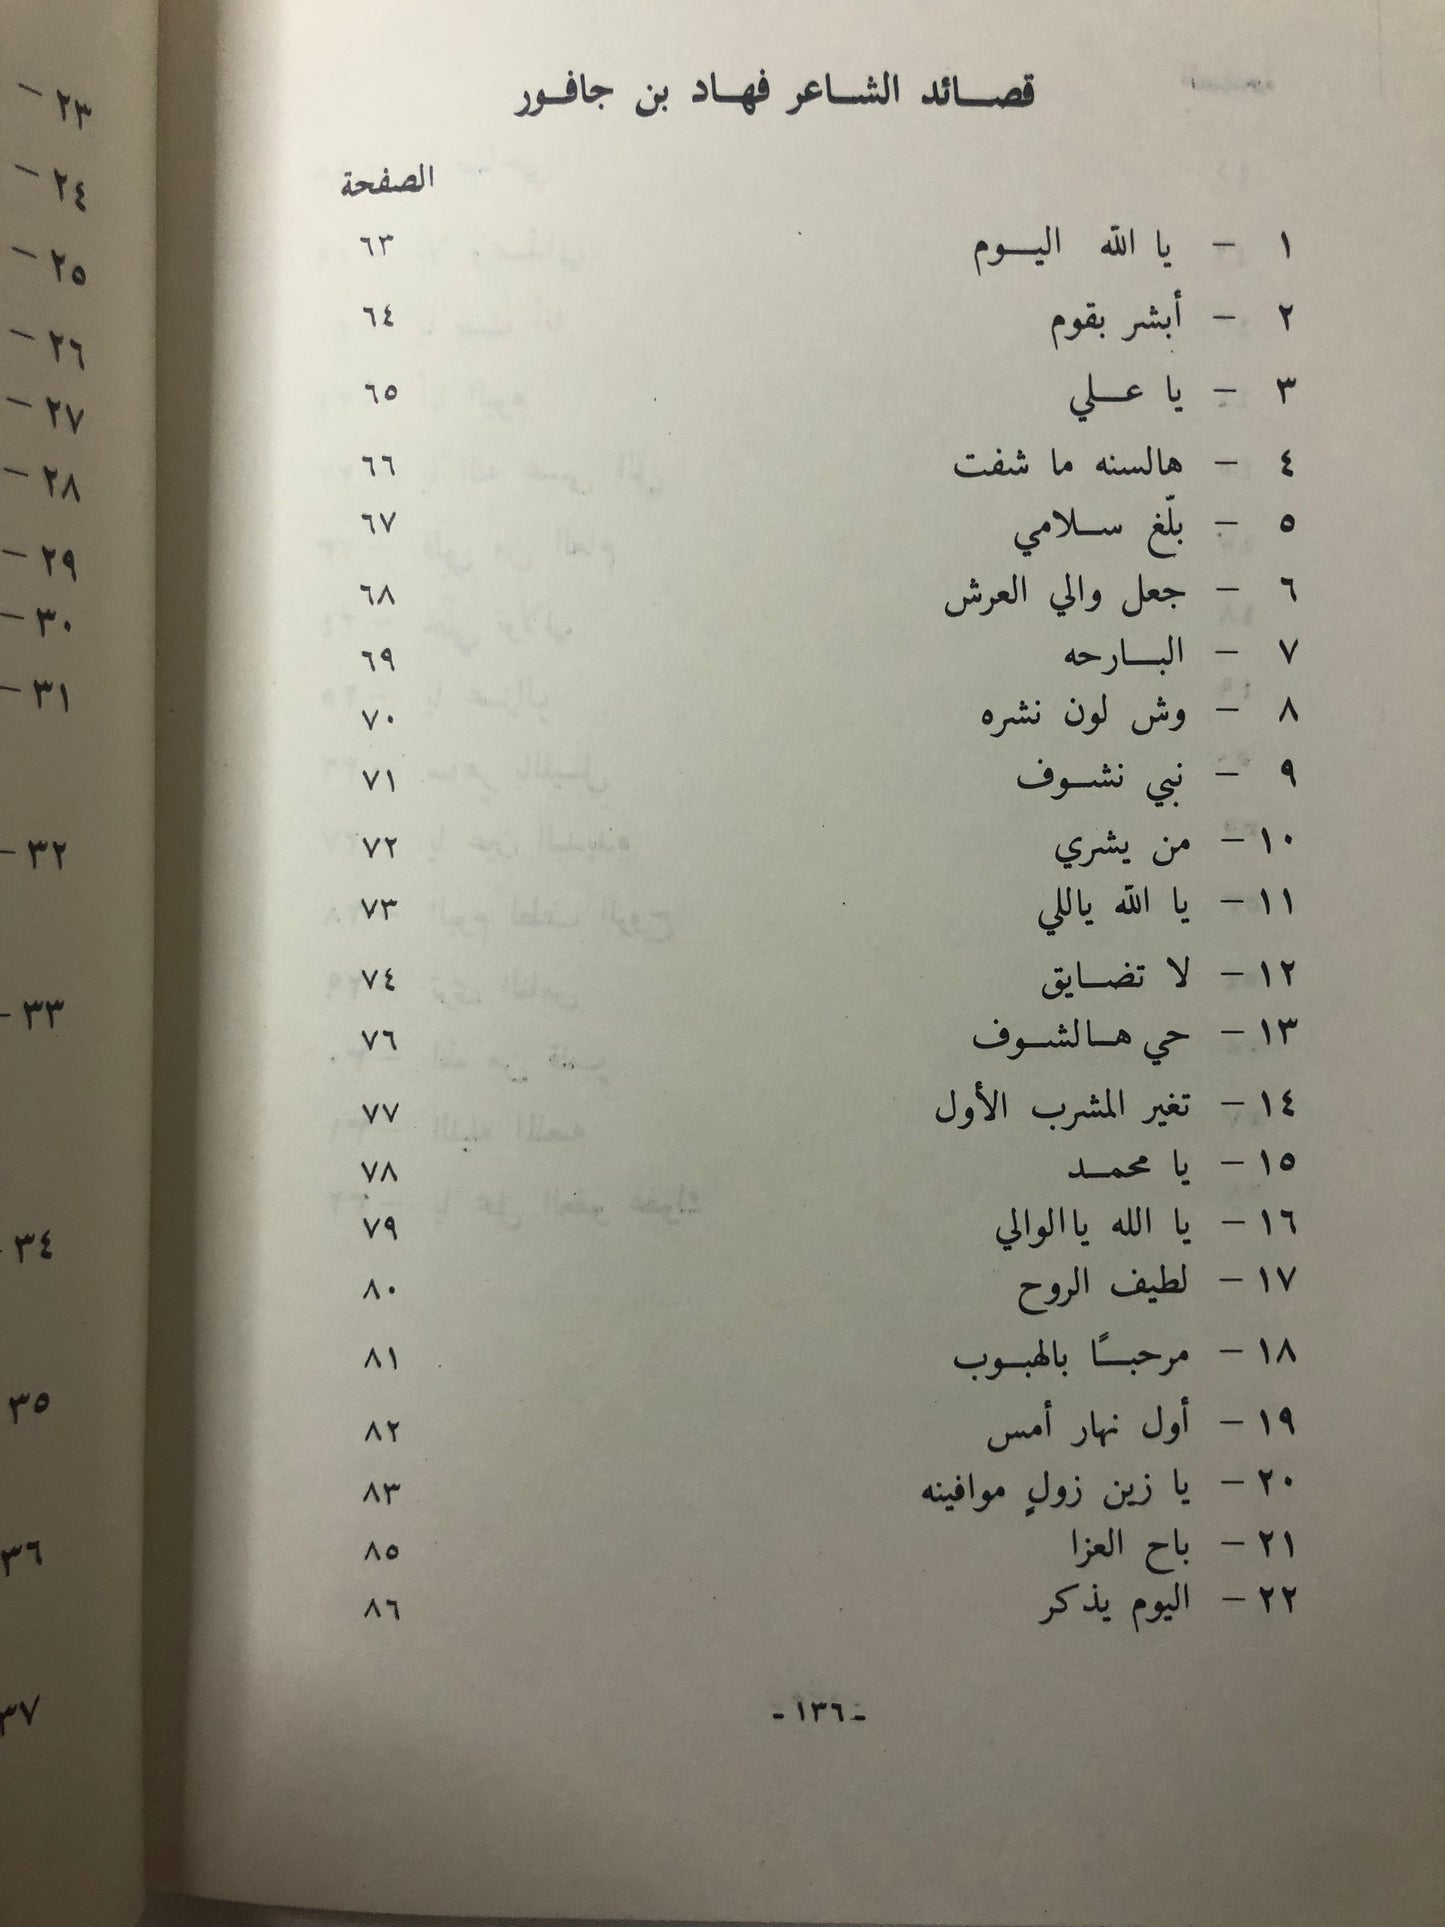 قصائد الشاعر فهاد بن جافور
الصفحة
١ – يا الله اليوم ٦٣
٢ – أبشر بقوم ٦٤
٣ – يا علي ٦٥
٤ – هالسنه ما شفت ٦٦
٥ – بلّغ سلامي ٦٧
٦ – جعل والي العرش ٦٨
٧ – البارحه ٦٩
٨ – وش لون نشره ٧٠
٩ – نبي نشوف ٧١
١٠ – من يشري ٧٢
١١ – يا الله ياللي ٧٣
١٢ – لا تضايق ٧٤
١٣ – حي هالشوف ٧٦
١٤ – تغير المشرب الأول ٧٧
١٥ – يا محمد ٧٨
١٦ – يا الله ياالوالي ٧٩
١٧ – لطيف الروح ٨٠
١٨ – مرحباً بالهبوب ٨١
١٩ – أول نهار أمس ٨٢
٢٠ – يا زين زولٍ موافينه ٨٣
٢١ – باح العزا ٨٥
٢٢ – اليوم يذكر ٨٦
- ١٣٦ -
٢٣ –
٢٤ –
٢٥ –
٢٦ –
٢٧ –
٢٨ –
٢٩ –
٣٠ –
٣١ –
٣٢ –
٣٣ –
٣٤ –
٣٥
٣٦
٣٧